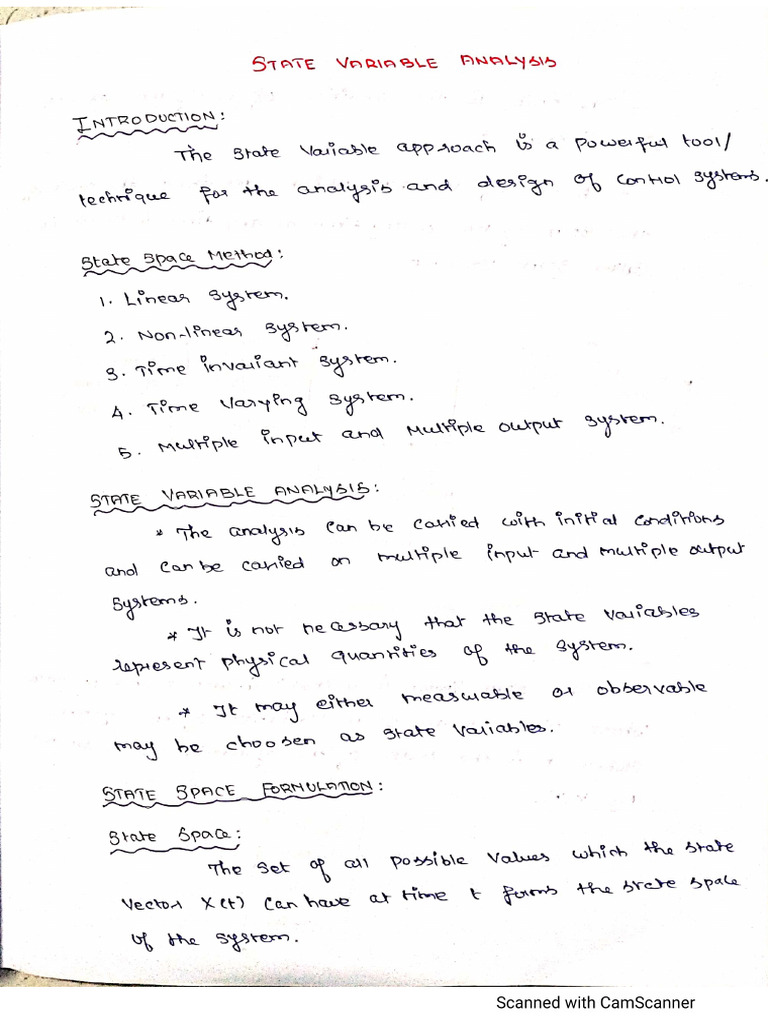 STATE VARIABLE ANALYSIS
INTRODUCTION:
The State Variable approach is a powerful tool/
technique for the analysis and design of control systems.
State Space Method:
1. Linear System.
2. Non-linear System.
3. Time invariant System.
4. Time Varying System.
5. Multiple input and Multiple output System.
STATE VARIABLE ANALYSIS:
* The analysis can be carried with initial conditions
and can be carried on multiple input and multiple output
Systems.
* It is not necessary that the state variables
represent physical quantities of the system.
* It may either measurable or observable
may be choosen as state variables.
STATE SPACE FORMULATION:
State Space:
The set of all possible values which the state
Vector X(t) can have at time t forms the state space
of the system.
Scanned with CamScanner